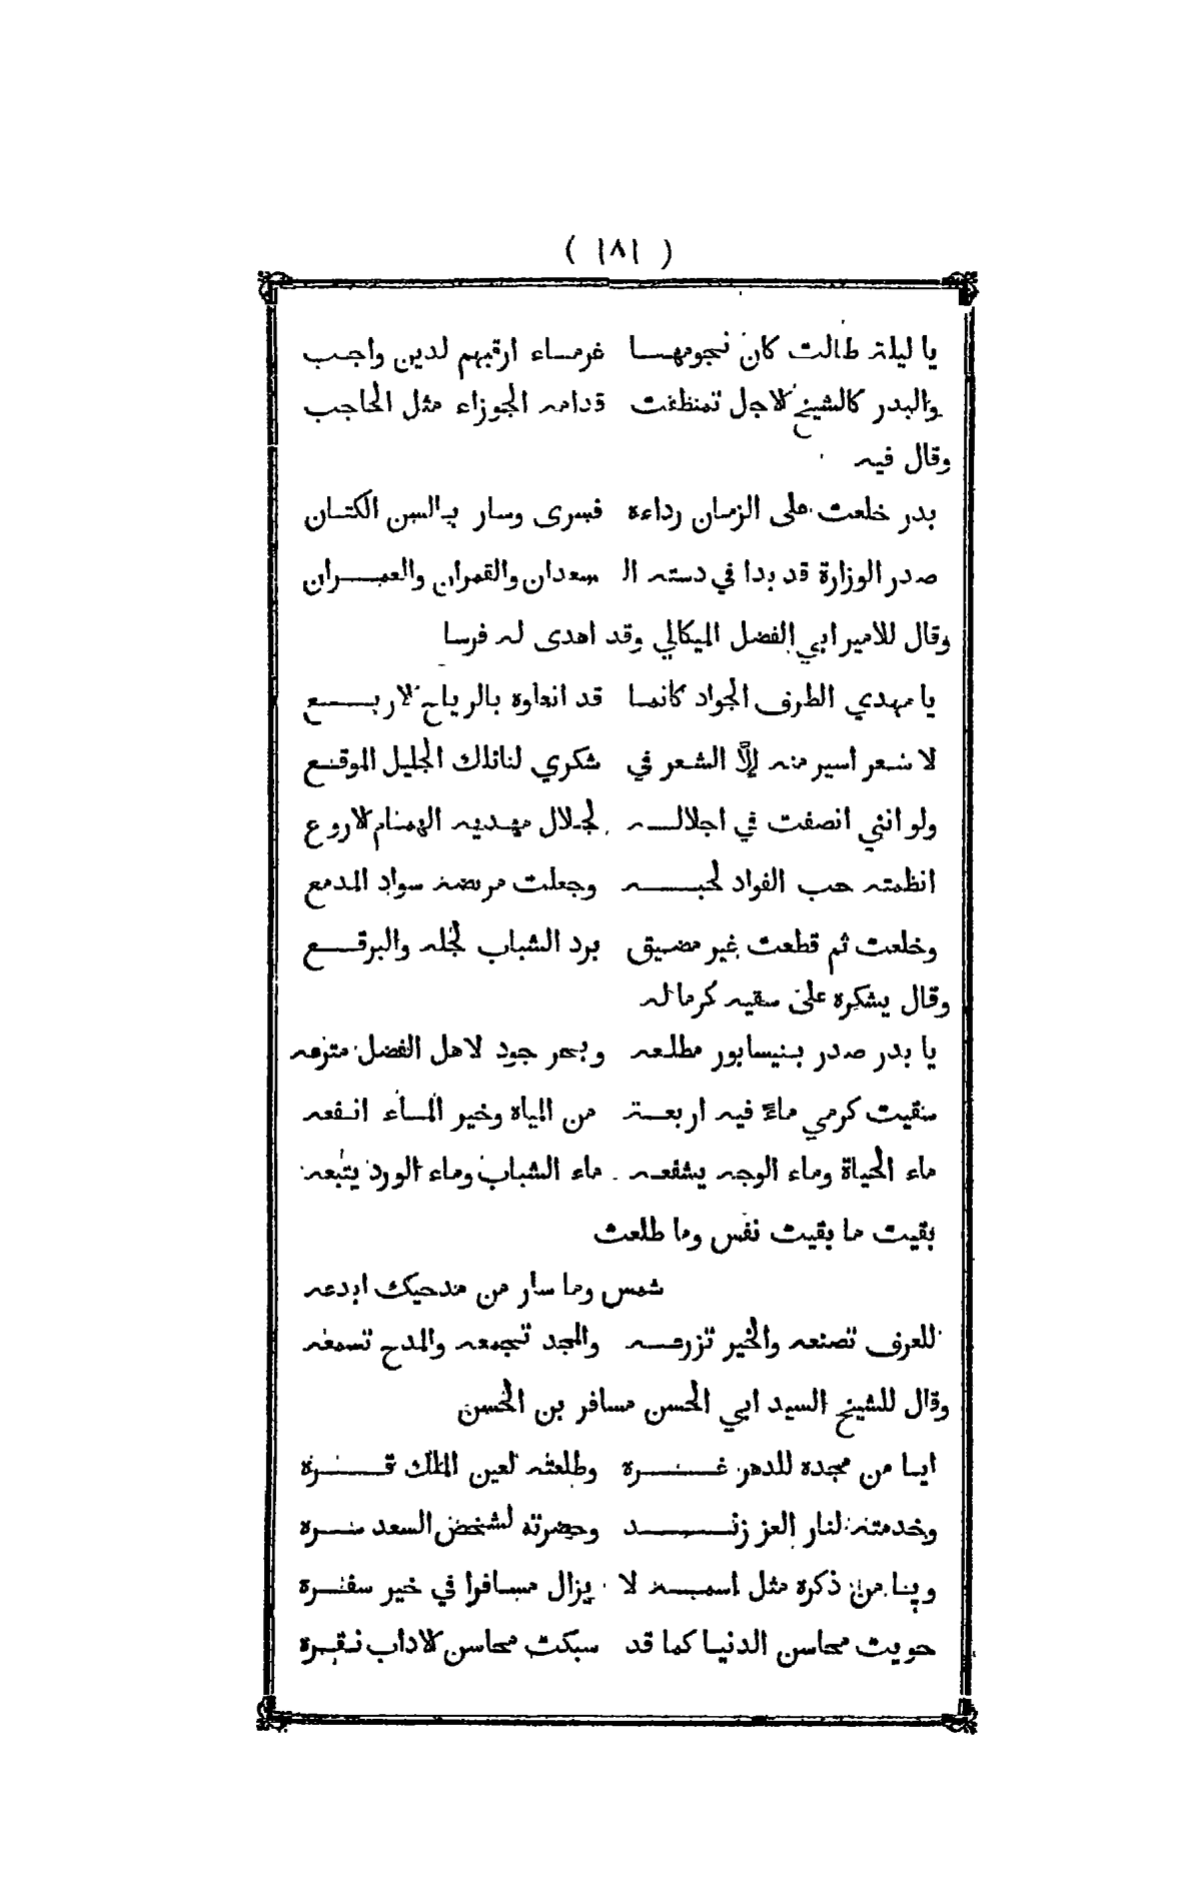 ( ١٨١ )
يا ليلة طالت كان نجومها غرماء ارقبهم لدين واجب
والبدر كالشيخ الاجل تمنطقت قدامه الجوزاء مثل الحاجب
وقال فيه
بدر خلعت على الزمان رداءه فسرى وسار بالسن الكتان
صدر الوزارة قد بدا في دسته ال سعدان والقمران والعمران
وقال للامير ابي الفضل الميكالي وقد اهدى له فرسا
يا مهدي الطرف الجواد كانما قد انعلوه بالرياح الاربع
لا شعر اسير منه إلاّ الشعر في شكري لنائلك الجليل الموقع
ولو انني انصفت في اجلاله لجلال مهديه الهمام الاروع
انظمته حب الفواد لحبه وجعلت مربضه سواد المدمع
وخلعت ثم قطعت غير مضيق برد الشباب لجله والبرقع
وقال يشكره على سقيه كرما له
يا بدر صدر بنيسابور مطلعه وبحر جود لاهل الفضل مترعه
سقيت كرمي ماءً فيه اربعة من المياه وخير الماء انفعه
ماء الحياة وماء الوجه يشفعه ماء الشباب وماء الورد يتبعه
بقيت ما بقيت نفس وما طلعت
شمس وما سار من مدحيك ابدعه
للعرف تصنعه والخير تزرعه والمجد تجمعه والمدح تسمعه
وقال للشيخ السيد ابي الحسن مسافر بن الحسن
ايا من مجده للدهر غره وطلعته لعين الملك قره
وخدمته لنار العز زند وحضرته لشخص السعد سره
ويا من ذكره مثل اسمه لا يزال مسافرا في خير سفره
حويت محاسن الدنيا كما قد سبكت محاسن الاداب نقره